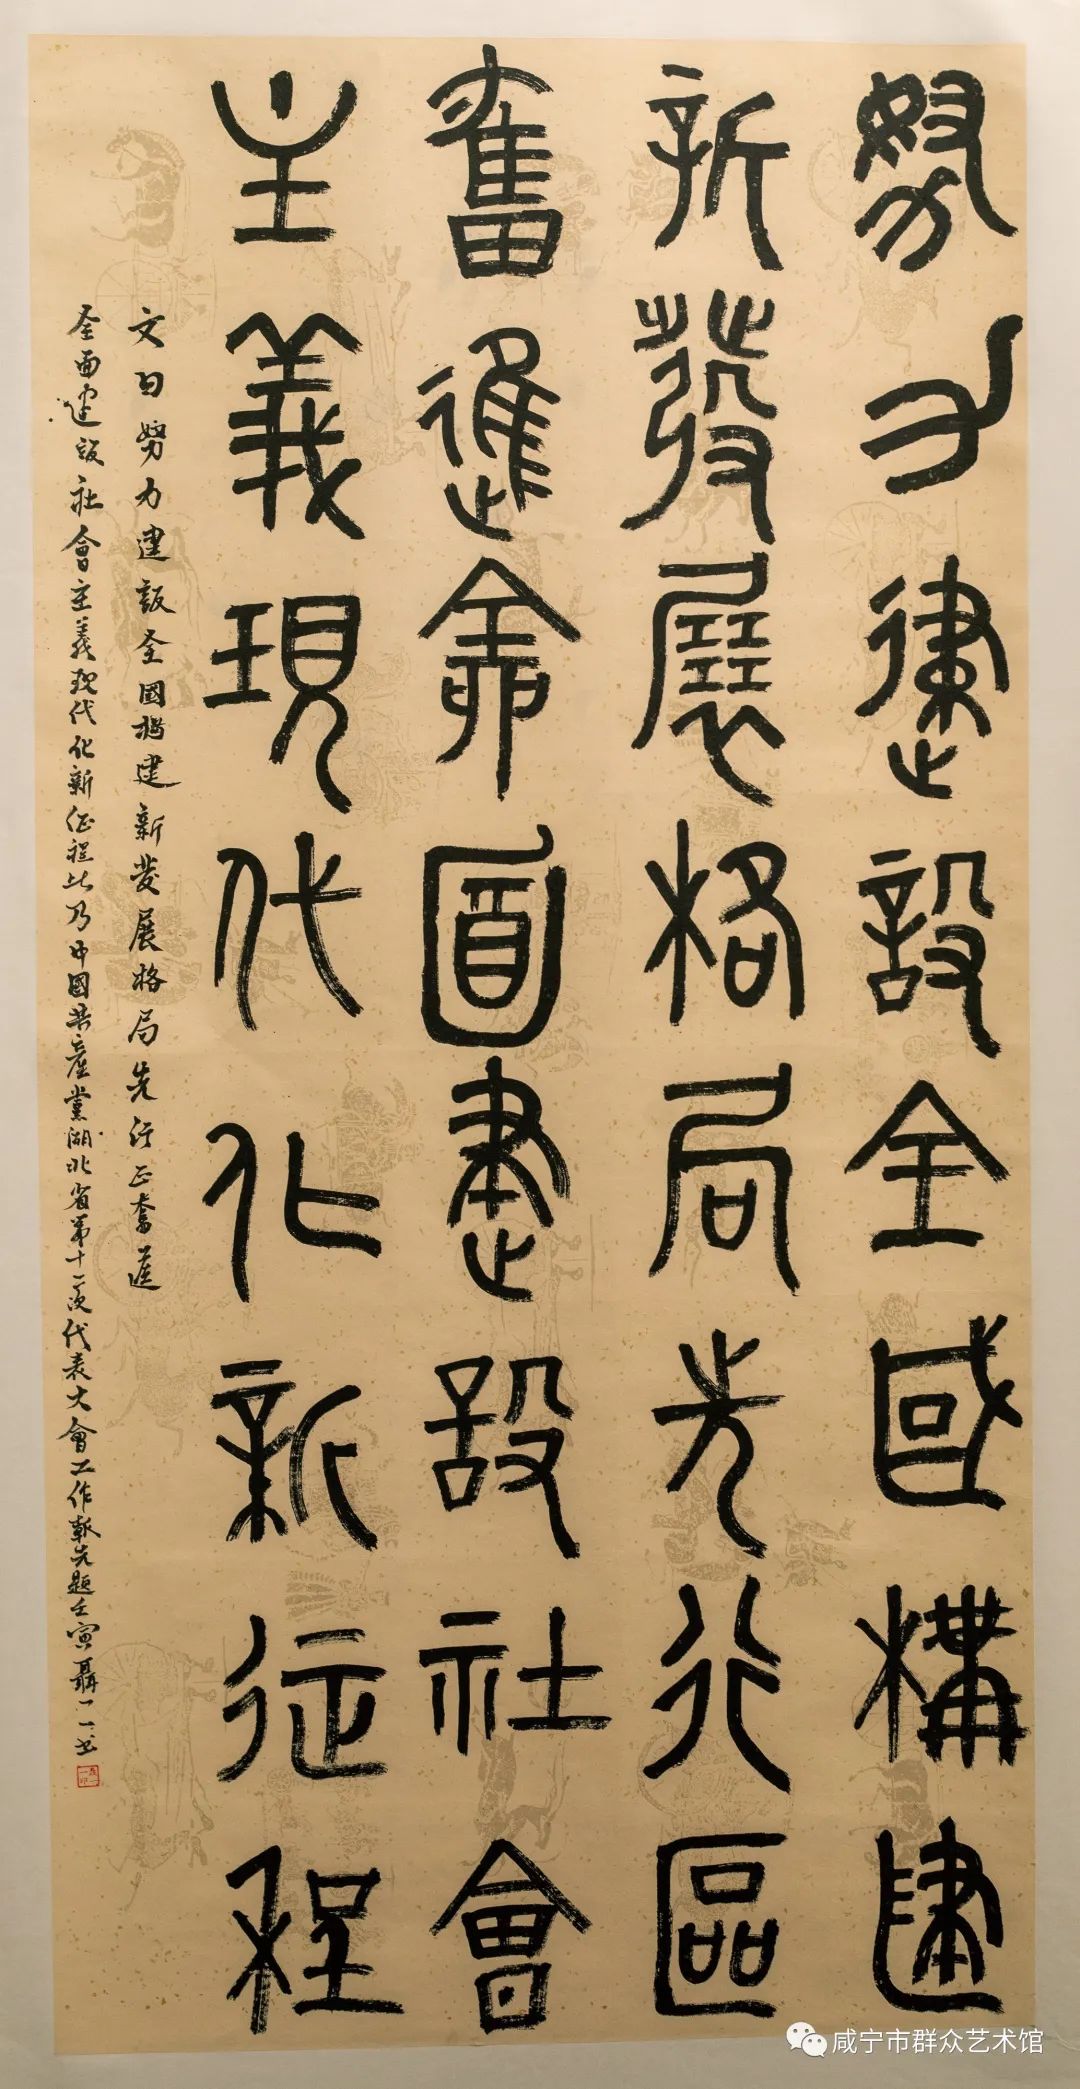 努力建設全國構建
新發展格局先行區
奮進全面建設社會
主義現代化新征程
文曰努力建設全國構建新發展格局先行区奮進
全面建設社會主義現代化新征程此乃中國共產黨湖北省第十二次代表大會工作報告題壬寅聶一一书
咸宁市群众艺术馆